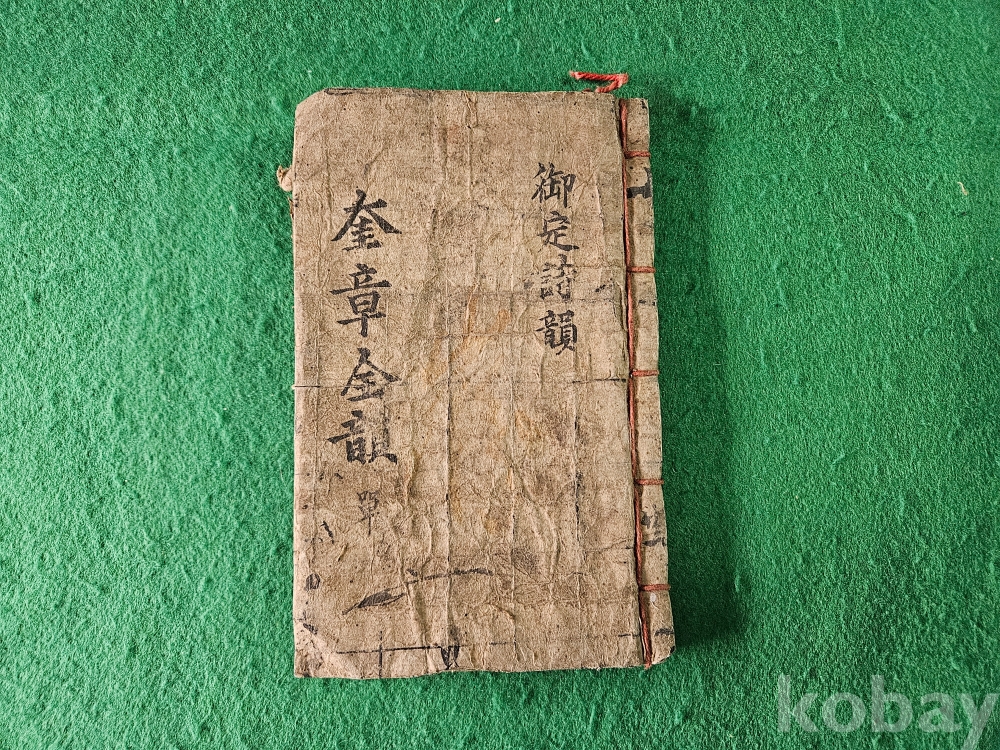 御定詩韻
奎章全韻 單
kobay